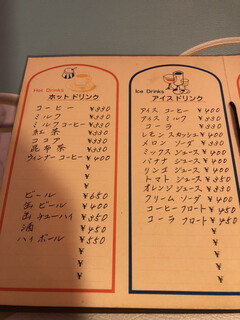 Hot Drinks
ホットドリンク
コーヒー ￥330
ミルク ￥330
ミルクコーヒー ￥330
紅茶 ￥330
ココア ￥330
昆布茶 ￥330
ウィンナーコーヒー ￥400
￥
￥
ビール ￥650
缶ビール ￥400
缶チューハイ ￥350
酒 ￥450
ハイボール ￥550
￥
￥
￥
Ice Drinks
アイスドリンク
アイスコーヒー ￥350
アイスミルク ￥350
コーラ ￥350
レモンスカッシュ ￥400
メロンソーダ ￥350
ミックスジュース ￥400
バナナジュース ￥400
リンゴジュース ￥400
トマトジュース ￥350
オレンジジュース ￥350
クリームソーダ ￥400
コーヒーフロート ￥450
コーラフロート ￥450
￥
￥
￥
￥